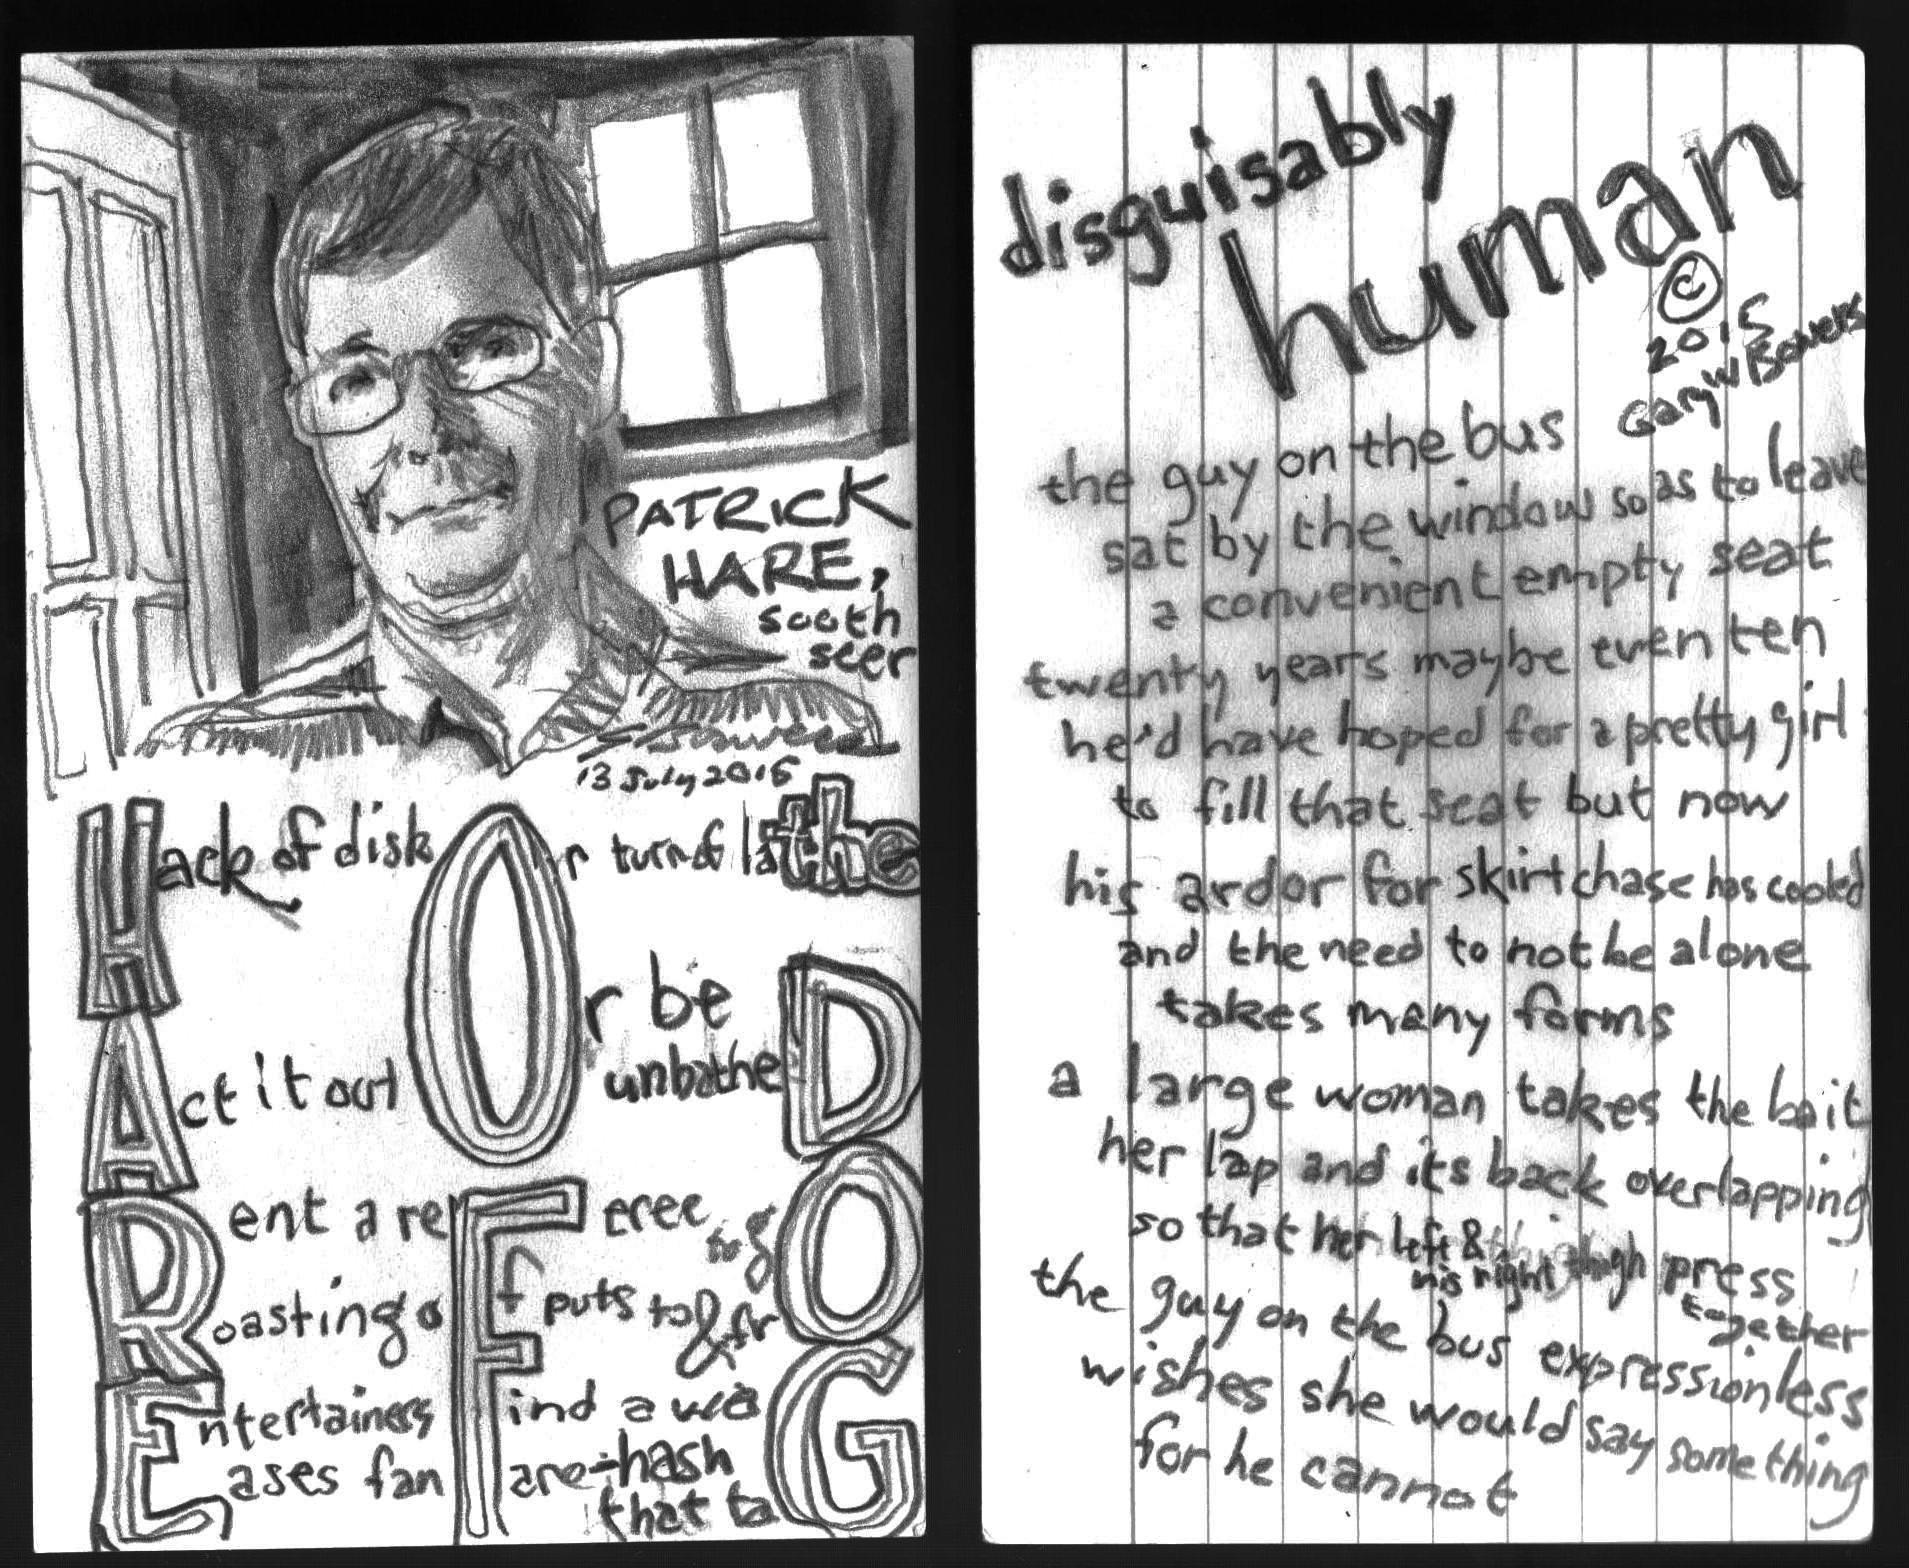 PATRICK
HARE,
sooth
seer
13 July 2015
Hack of disk Or turn of lathe
Act it out Or be
unbatheD
Rent a reFeree to gO
Roasting oF f puts to & fr
Entertainers Find a way
Eases fan Fare-hash
that taG
disguisably
human
©
2015
Gary W Bowers
the guy on the bus
sat by the window so as to leave
a convenient empty seat
twenty years maybe even ten
he'd have hoped for a pretty girl
to fill that seat but now
his ardor for skirtchase has cooled
and the need to not be alone
takes many forms
a large woman takes the bait
her lap and its back overlapping
so that her left & his right thigh press
together
the guy on the bus expressionless
wishes she would say something
for he cannot